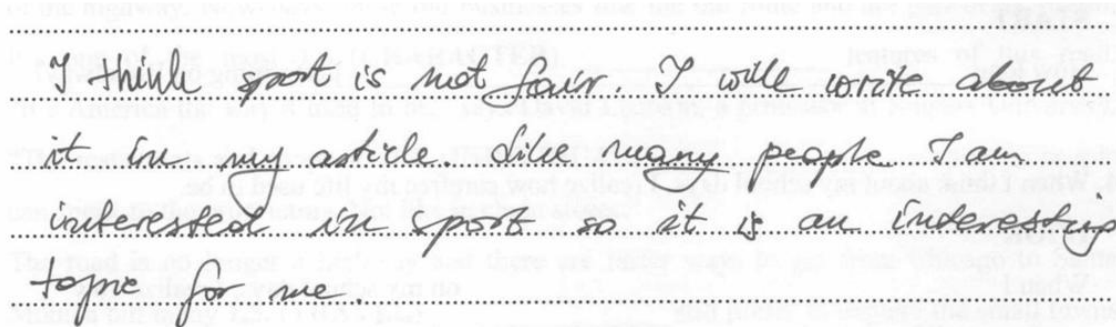 I think sport is not fair. I will write about
it in my article. Like many people I am
interested in sport so it is an interesting
topic for me.